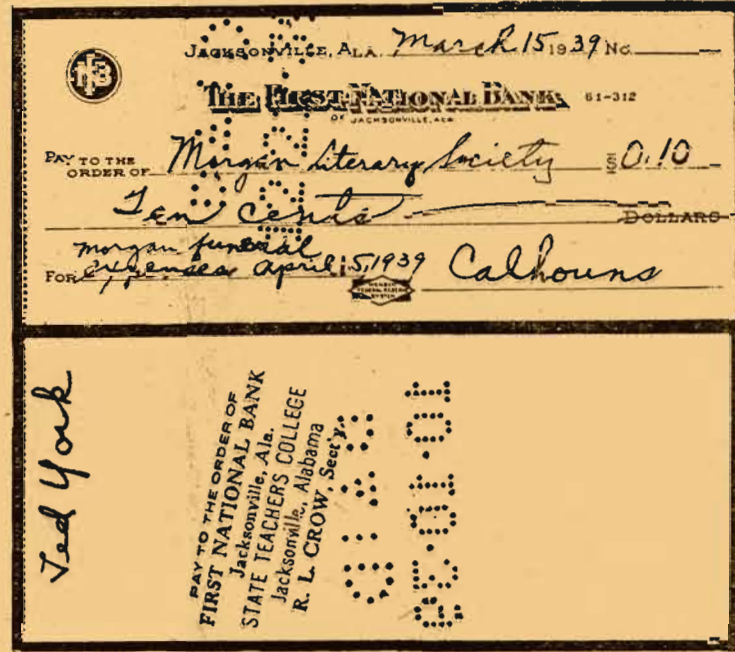 FNB
JACKSONVILLE, ALA. March 15 1939 No.
THE FIRST NATIONAL BANK 61-312
OF JACKSONVILLE, ALA
PAY TO THE ORDER OF Morgan Literary Society $0.10
Ten cents DOLLARS
morgan funeral
FOR expenses april 15, 1939 Calhouns
MEMBER
FEDERAL RESERVE
SYSTEM
Ted York
PAY TO THE ORDER OF
FIRST NATIONAL BANK
Jacksonville, Ala.
STATE TEACHERS COLLEGE
Jacksonville, Alabama
R. L. CROW, Sect'y.
PAID
10·10·39